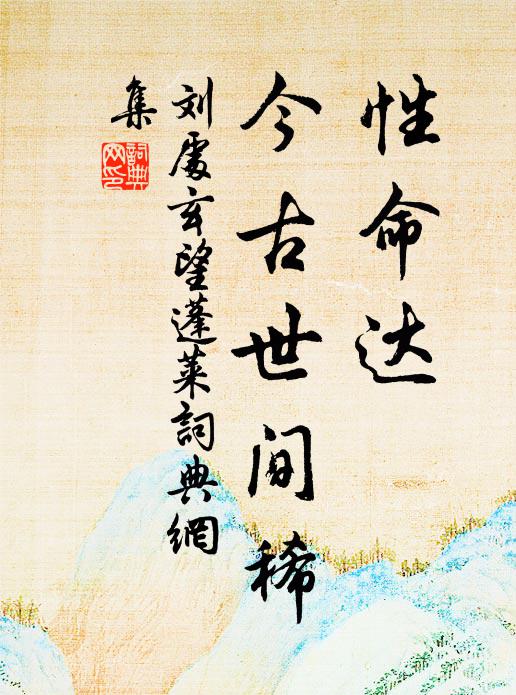 性命达
今古世间稀
刘處玄望蓬莱詞典網
集
詞典
网印